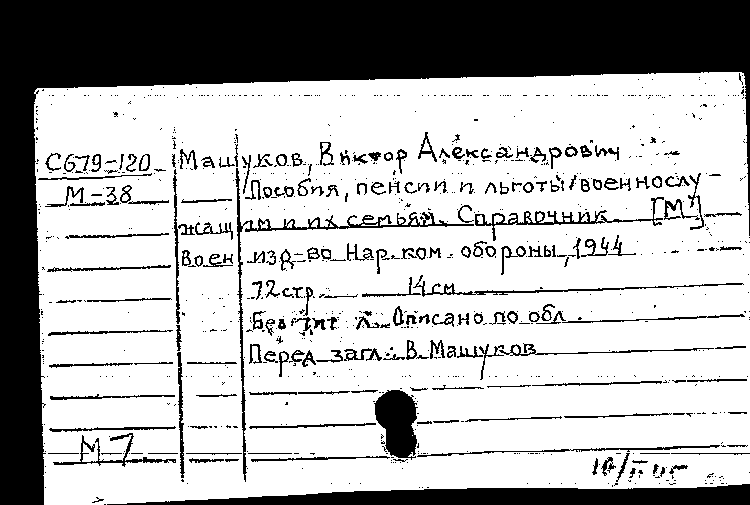 С679-120 Машуков, Виктор Александрович
М-38 Пособия, пенсии и льготы/военнослу
жащим и их семьям. Справочник. [М]
Воен. изд-во Нар. ком. обороны, 1944
72стр. 14см.
Без тит л. Описано по обл.
Перед загл.: В. Машуков
М7